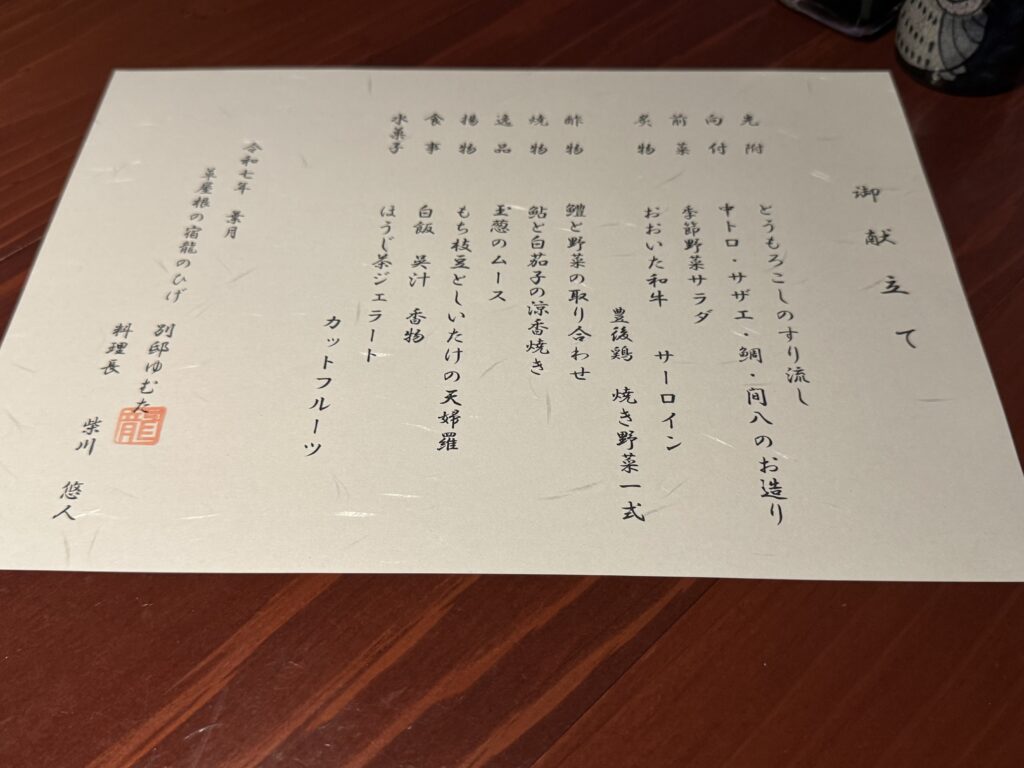 御献立て
先附　とうもろこしのすり流し
向付　中トロ・サザエ・鯛・間八のお造り
前菜　季節野菜サラダ
炙物　おおいた和牛　サーロイン
豊後鶏　焼き野菜一式
酢物　鱧と野菜の取り合わせ
焼物　鮎と白茄子の涼香焼き
逸品　玉葱のムース
揚物　もち枝豆としいたけの天婦羅
食事　白飯　呉汁　香物
水菓子　ほうじ茶ジェラート
カットフルーツ
令和七年　葉月
草屋根の宿龍のひげ
別邸ゆむた
料理長　柴川　悠人
龍